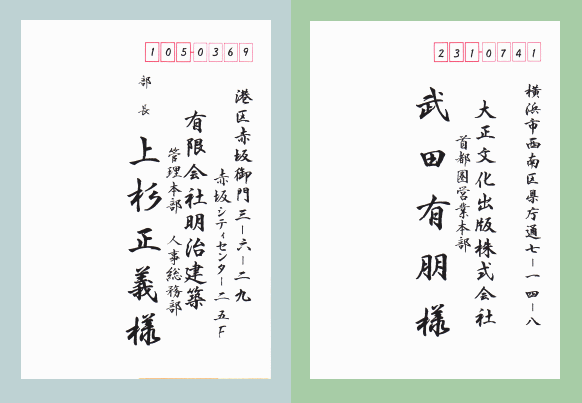 105-0369
港区赤坂御門三ー六ー二九
赤坂シティセンター二五F
有限会社明治建築
管理本部 人事総務部
部長
上杉正義様
231-0741
横浜市西南区県庁通七ー一四ー八
大正文化出版株式会社
首都圏営業本部
武田有朋様